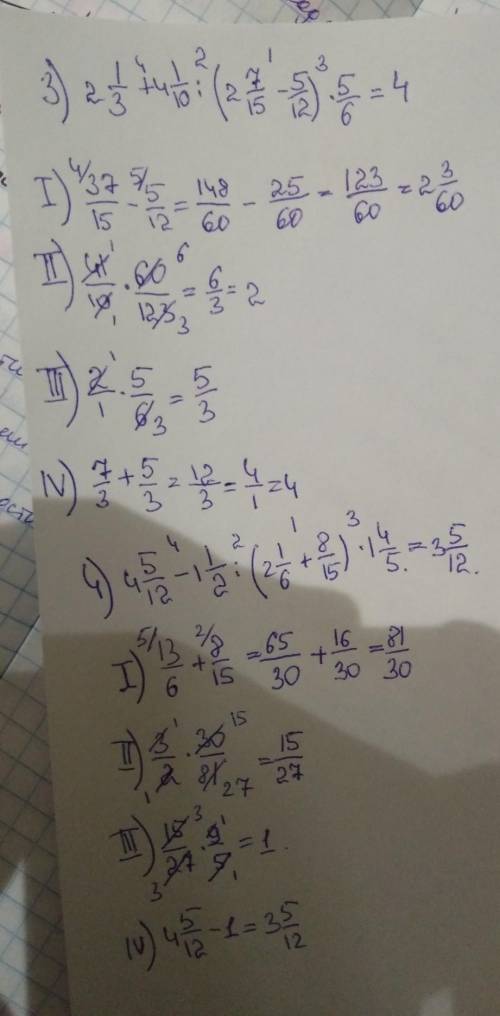 3) 2 1/3 +⁴ 4 1/10 :² (2 7/15 -¹ 5/12) ·³ 5/6 = 4
I) ⁴/37/15 - ⁵/5/12 = 148/60 - 25/60 = 123/60 = 2 3/60
II) 41¹/10₁ · 60⁶/123₃ = 6/3 = 2
III) 2¹/1 · 5/6₃ = 5/3
IV) 7/3 + 5/3 = 12/3 = 4/1 = 4
4) 4 5/12 -⁴ 1 1/2 :² (2 1/6 +¹ 8/15) ·³ 1 4/5. = 3 5/12.
I) ⁵/13/6 + ²/8/15 = 65/30 + 16/30 = 81/30
II) 3¹/2₁ · 30¹⁵/81₂₇ = 15/27
III) 15³/27₃ · 9¹/5₁ = 1.
IV) 4 5/12 - 1 = 3 5/12